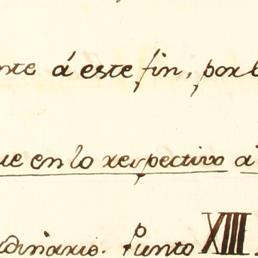 nte á este fin, por l
ue en lo respectivo a
dinario. Punto XIII.